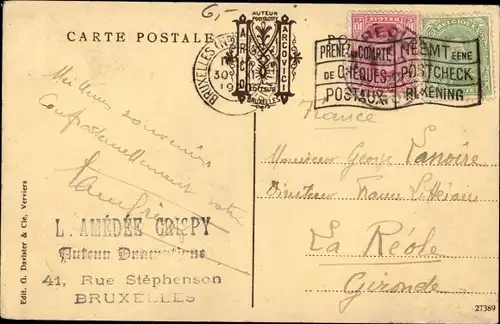 6,-
CARTE POSTALE
AUTEUR
POLYGLOTTE
MARCO
ARCOVICI
EDITEUR
BRUXELLES
BRUXELLES
30
19
PRENEZ UN COMPTE
DE CHÈQUES
POSTAUX
NEEMT EENE
POSTCHECK
REKENING
BELGIQUE
France
Meilleurs souvenirs
Confraternellement votre
Monsieur Georges
Directeur France Littéraire
La Réole
Gironde
L. AMÉDÉE CRISPY
Auteur Dramatique
41, Rue Stéphenson
BRUXELLES
Edit. G. Davister & Cie, Verviers
27389